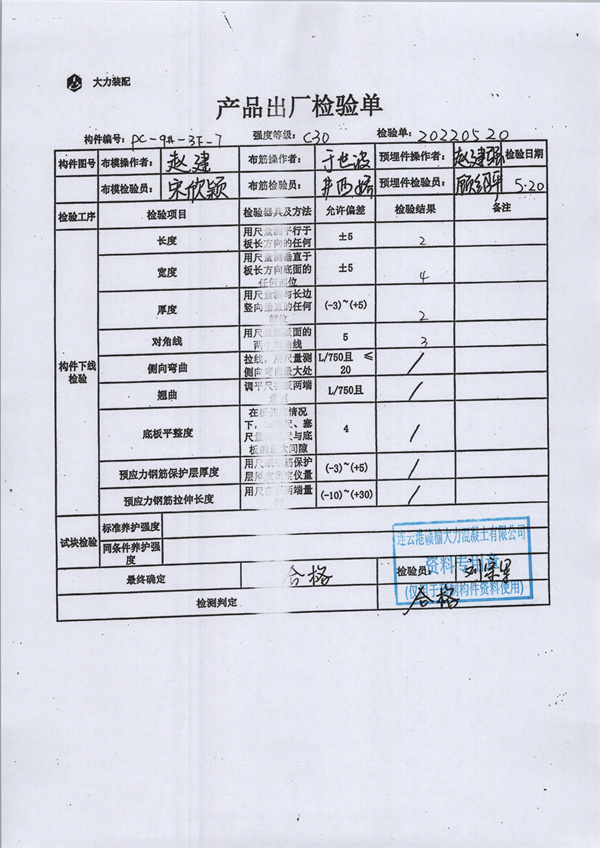 大力装配
产品出厂检验单
构件编号：PC-9#-3F-7 强度等级：C30 检验单：20220520
构件图号 布模操作者：赵建 布筋操作者：于世波 预埋件操作者：赵建强 检验日期
布模检验员：宋欣颖 布筋检验员： 预埋件检验员： 5.20
检验工序 检验项目 检验器具及方法 允许偏差 检验结果 备注
构件下线检验
长度 用尺量测平行于板长方向的任何 ±5 2
宽度 用尺量测垂直于板长方向底面的任何部位 ±5 4
厚度 用尺量测与长边竖向垂直的任何部位 (-3)~(+5) 2
对角线 用尺量测板面的两个对角线 5 3
侧向弯曲 拉线，用尺量测侧向弯曲最大处 L/750且 ≤20 /
翘曲 调平尺在板两端量测 L/750且 /
底板平整度 在板侧立情况下， 尺、塞尺量测 尺与底板的最大间隙 4 /
预应力钢筋保护层厚度 用尺或钢筋保护层厚度测定仪量 (-3)~(+5) /
预应力钢筋拉伸长度 用尺在板两端量 (-10)~(+30) /
试块检验 标准养护强度
同条件养护强度
最终确定 合格 检验员：
检测判定 合格
连云港赣榆大力混凝土有限公司
资料专用章
(仅用于预制构件资料使用)